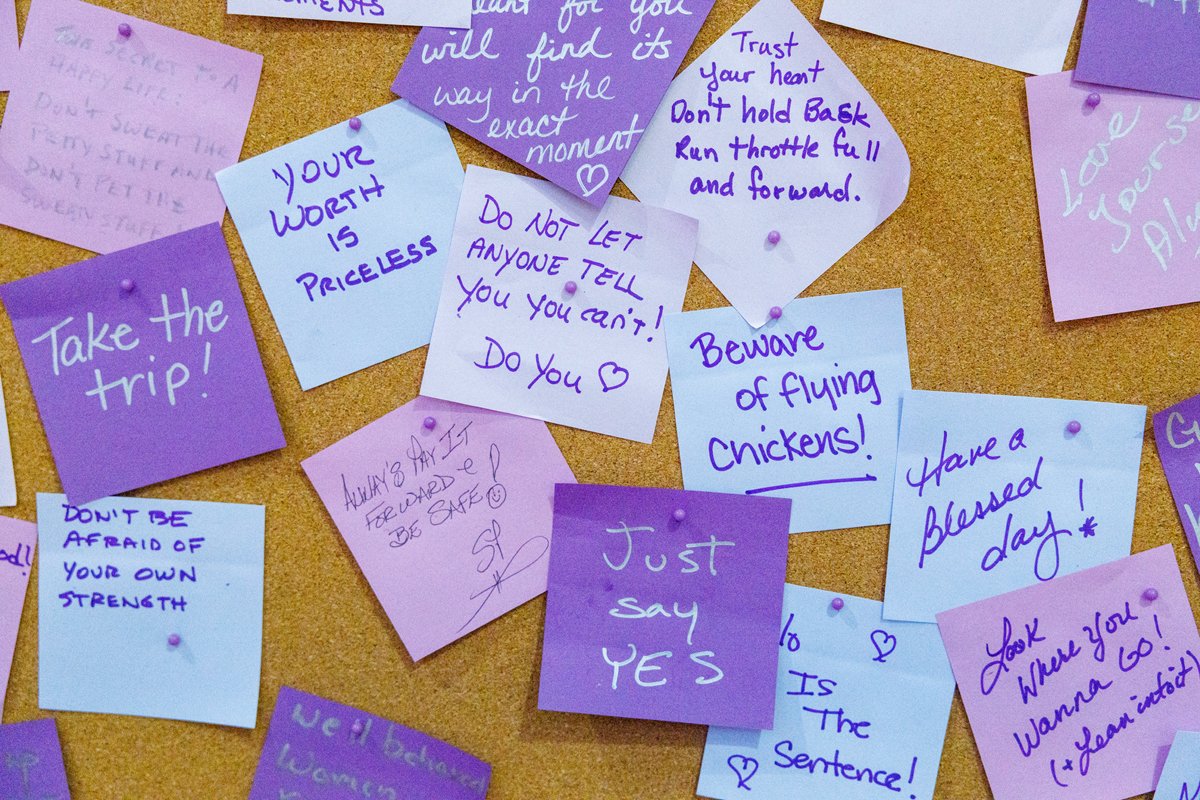 THE SECRET TO A
HAPPY LIFE:
DON'T SWEAT THE
PETTY STUFF AND
DON'T PET THE
SWEATY STUFF!
for you
will find its
way in the
exact
moment
Trust
your heart
Don't hold Back
Run throttle full
and forward.
Love
Yourse
YOUR
WORTH
IS
PRICELESS
DO NOT LET
ANYONE TELL
YOU YOU can't!
Do You
Take the
trip!
Beware
of flying
chickens!
Have a
Blessed
day!*
ALWAY'S PAY IT
FORWARD &
BE SAFE!
DON'T BE
AFRAID OF
YOUR OWN
STRENGTH
Just
say
YES
Is
The
Sentence!
Look
Where You
Wanna GO!
(+ Lean into it)
Well behaved
Women